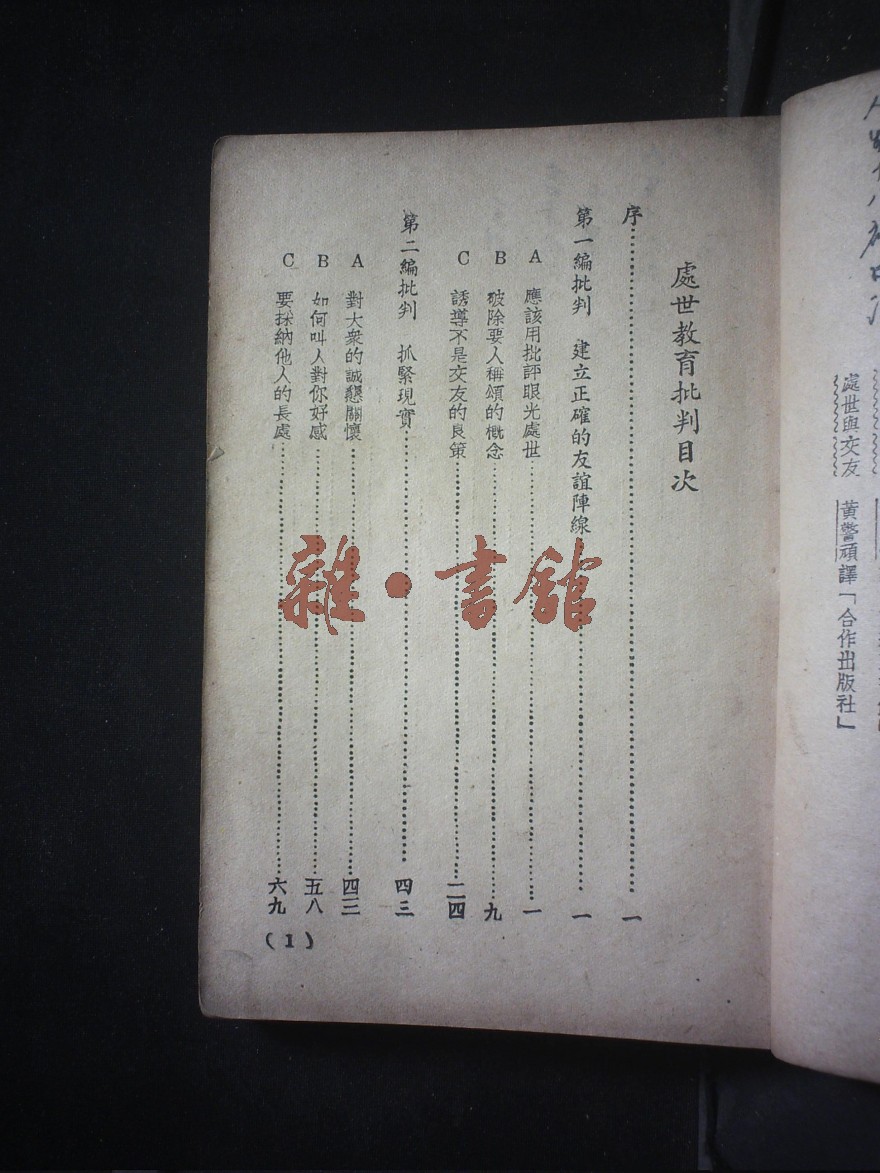 處世教育批判目次
序……一
第一編批判 建立正確的友誼陣線……一
A 應該用批評眼光處世……一
B 破除要人稱頌的概念……九
C 誘導不是交友的良策……二四
第二編批判 抓緊現實……四三
A 對大衆的誠懇關懷……四三
B 如何叫人對你好感……五八
C 要採納他人的長處……六九
(1)
處世與交友 黃警頑譯「合作出版社」
雜·書館